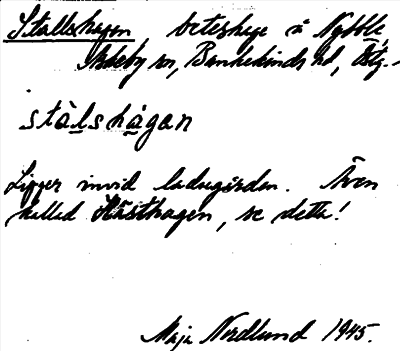 Stallshagen, beteshage å Nybble
Askeby sn, Bankekinds hd, Östg.
stàlshágan
Ligger invid ladugården. Även
kallad Hästhagen, se detta!
Maja Nordlund 1945.